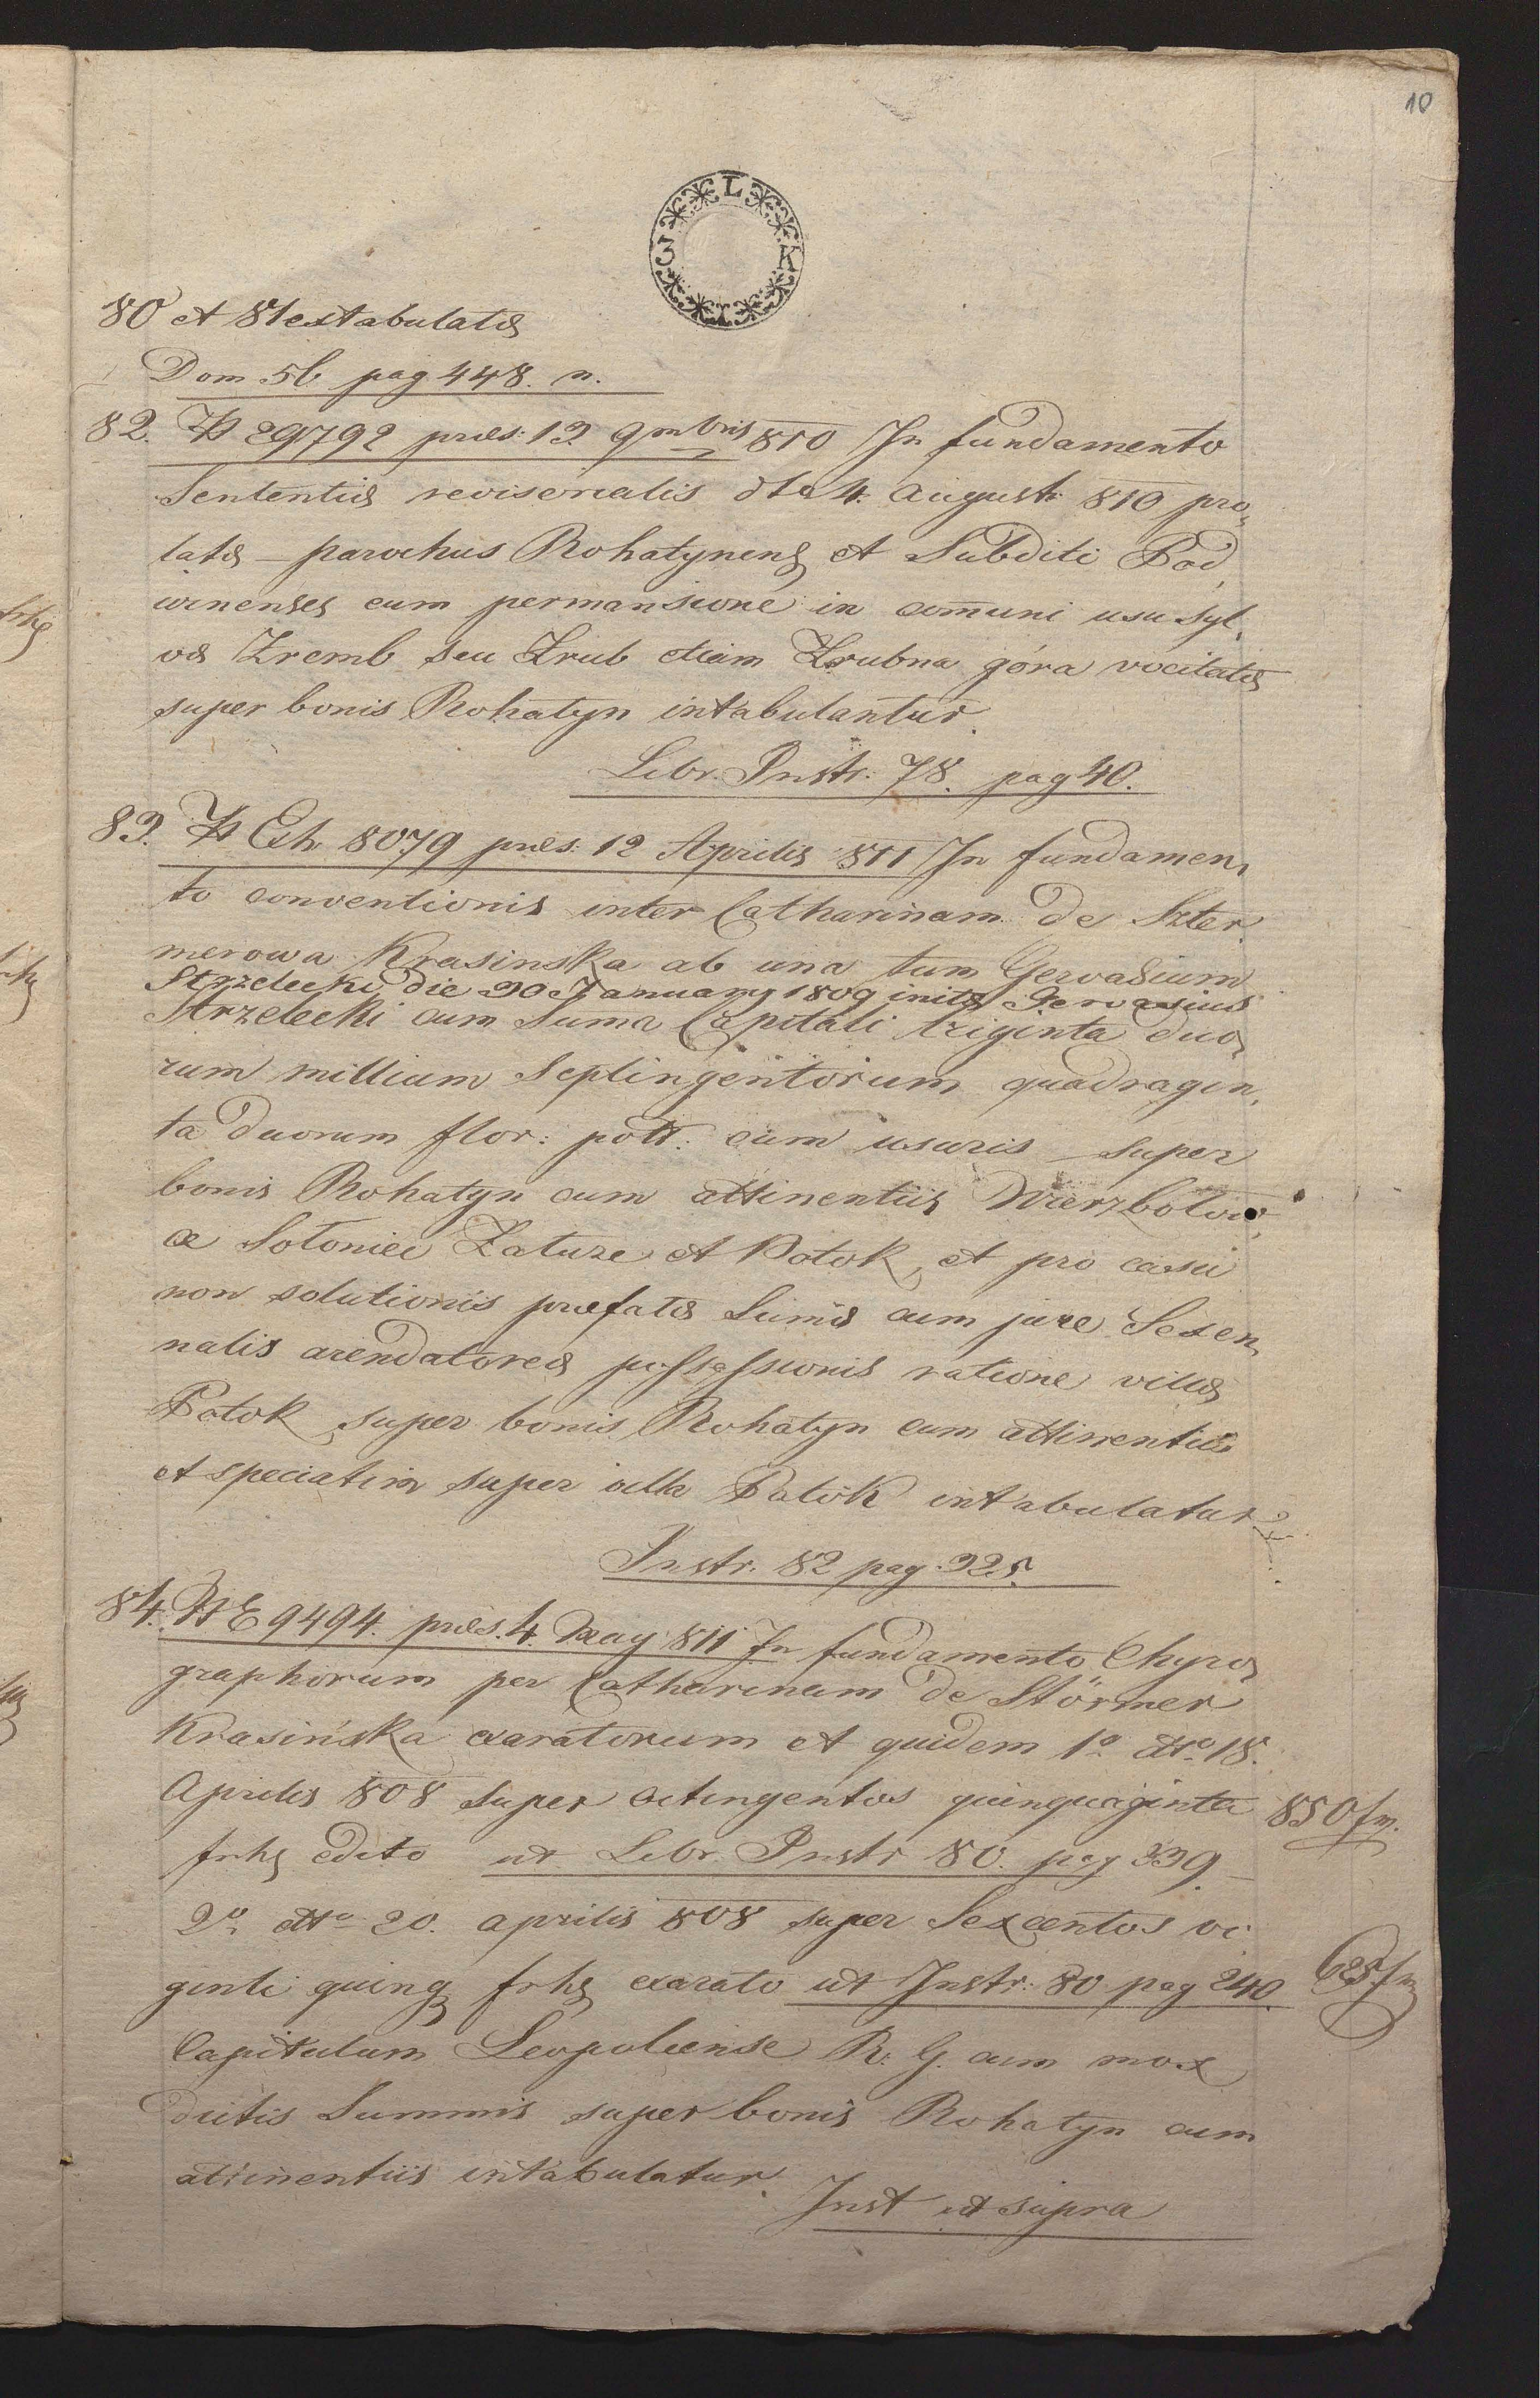 10
3 L K I
80 et 81 extabulatæ
Dom 56 pag 448. n.
82. N 29792 præs: 12 9mbris 810 In fundamento
Sententiæ revisorialis dto 4. August: 810 pro
latæ parochus Rohatynens et Subditi Pod
winenses cum permansione in comuni usu syl
væ Zremb seu Zrub etiam Zrubna góra vocitatæ
super bonis Rohatyn intabulantur.
Libr. Instr: 78. pag 40.
83. N Exh 8079 præs: 12 Aprilis 811 In fundamen
to conventionis inter Catharinam de Szter
merowa Krasinska ab una tum Gervasium
Strzelecki die 20 January 1809 initæ Gervasius
Strzelecki cum Suma Capitali triginta duo
rum millium Septingentorum quadragin
ta duorum flor: poll: cum usuris super
bonis Rohatyn cum attinentiis Wierzbolow
ce Sołoniec Załuze et Potok, et pro casu
non solutionis præfatæ Sumæ cum jure Sexen
nalis arendatoreæ possessionis ratione villæ
Potok super bonis Rohatyn cum attinentiis
et speciatim super villa Potok intabulatur
Instr. 82 pag. 325.
84. N E 9494. præs. 4. May 811 In fundamento Chyro
graphorum per Catharinam de Störmer
Krasińska exaratorum et quidem 1o dtto 18.
Aprilis 808 super octingentos quinquaginta 850 fr.
frhs edito ut Libr. Instr 80. pag 339.
2o dtto 20. aprilis 808 super Sexcentos vi
ginti quinq frhs exarato ut Instr: 80 pag 240. 625 fr
Capitulum Leopoliense R: G. cum mox
dictis Summis super bonis Rohatyn cum
attinentiis intabulatur.
Inst ut supra